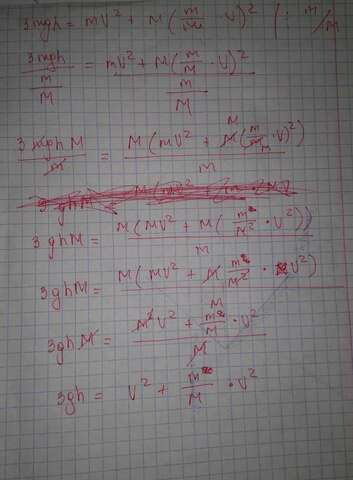 3mgh = mV² + M(m/M · V)² (: m/M
3mgh/(m/M) = (mV² + M(m/M · V)²)/(m/M)
3mghM/m = M(mV² + M(m/M · V)²)/m
3ghM = M(MV² + M(m²/M² · V²))/M
3ghM = M(MV² + M m²/M² · V²)
3ghM = (M²V² + m²/M · V²)/M
3gh = V² + m²/M · V²